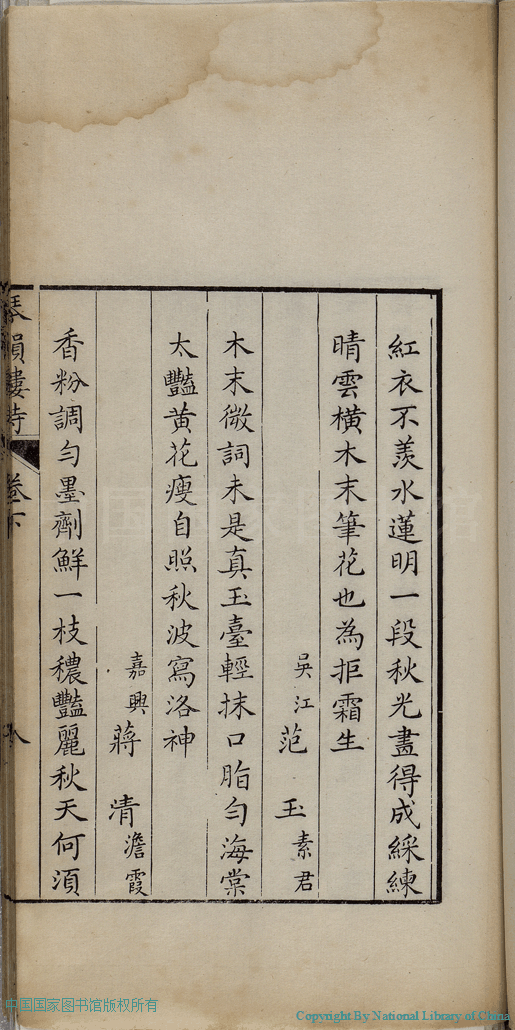 紅衣不羨水蓮明一段秋光畫得成綵練
晴雲橫木末筆花也為拒霜生
吳江范玉素君
木末微詞未是真玉臺輕抹口脂勻海棠
太豔黃花瘦自照秋波寫洛神
嘉興蔣清澹霞
香粉調勻墨劑鮮一枝穠豔麗秋天何須
琴韻樓詩 卷下 八
中国国家图书馆
中国国家图书馆版权所有
Copyright By National Library of China